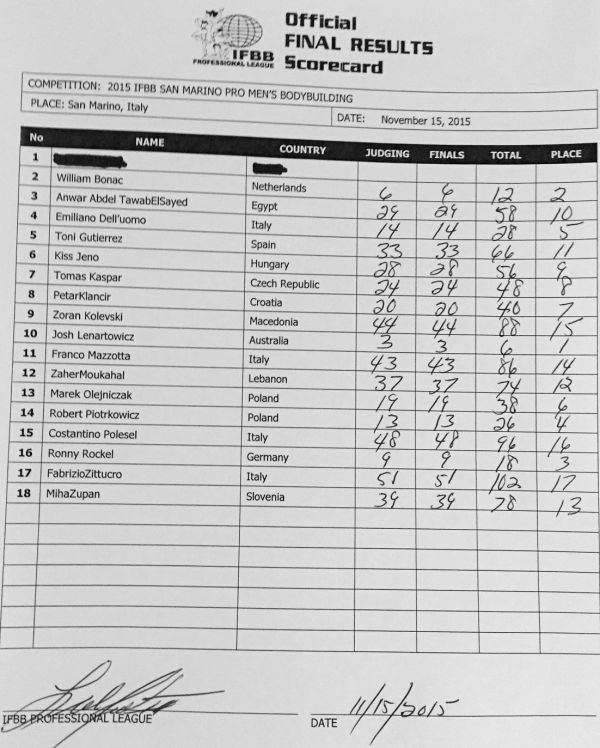 Official
FINAL RESULTS
Scorecard
IFBB
PROFESSIONAL LEAGUE
COMPETITION: 2015 IFBB SAN MARINO PRO MEN'S BODYBUILDING
PLACE: San Marino, Italy DATE: November 15, 2015
No NAME COUNTRY JUDGING FINALS TOTAL PLACE
1
2 William Bonac Netherlands 6 6 12 2
3 Anwar Abdel TawabElSayed Egypt 29 29 58 10
4 Emiliano Dell'uomo Italy 14 14 28 5
5 Toni Gutierrez Spain 33 33 66 11
6 Kiss Jeno Hungary 28 28 56 9
7 Tomas Kaspar Czech Republic 24 24 48 8
8 PetarKlancir Croatia 20 20 40 7
9 Zoran Kolevski Macedonia 44 44 88 15
10 Josh Lenartowicz Australia 3 3 6 1
11 Franco Mazzotta Italy 43 43 86 14
12 ZaherMoukahal Lebanon 37 37 74 12
13 Marek Olejniczak Poland 19 19 38 6
14 Robert Piotrkowicz Poland 13 13 26 4
15 Costantino Polesel Italy 48 48 96 16
16 Ronny Rockel Germany 9 9 18 3
17 FabrizioZittucro Italy 51 51 102 17
18 MihaZupan Slovenia 39 39 78 13
11/15/2015
IFBB PROFESSIONAL LEAGUE DATE